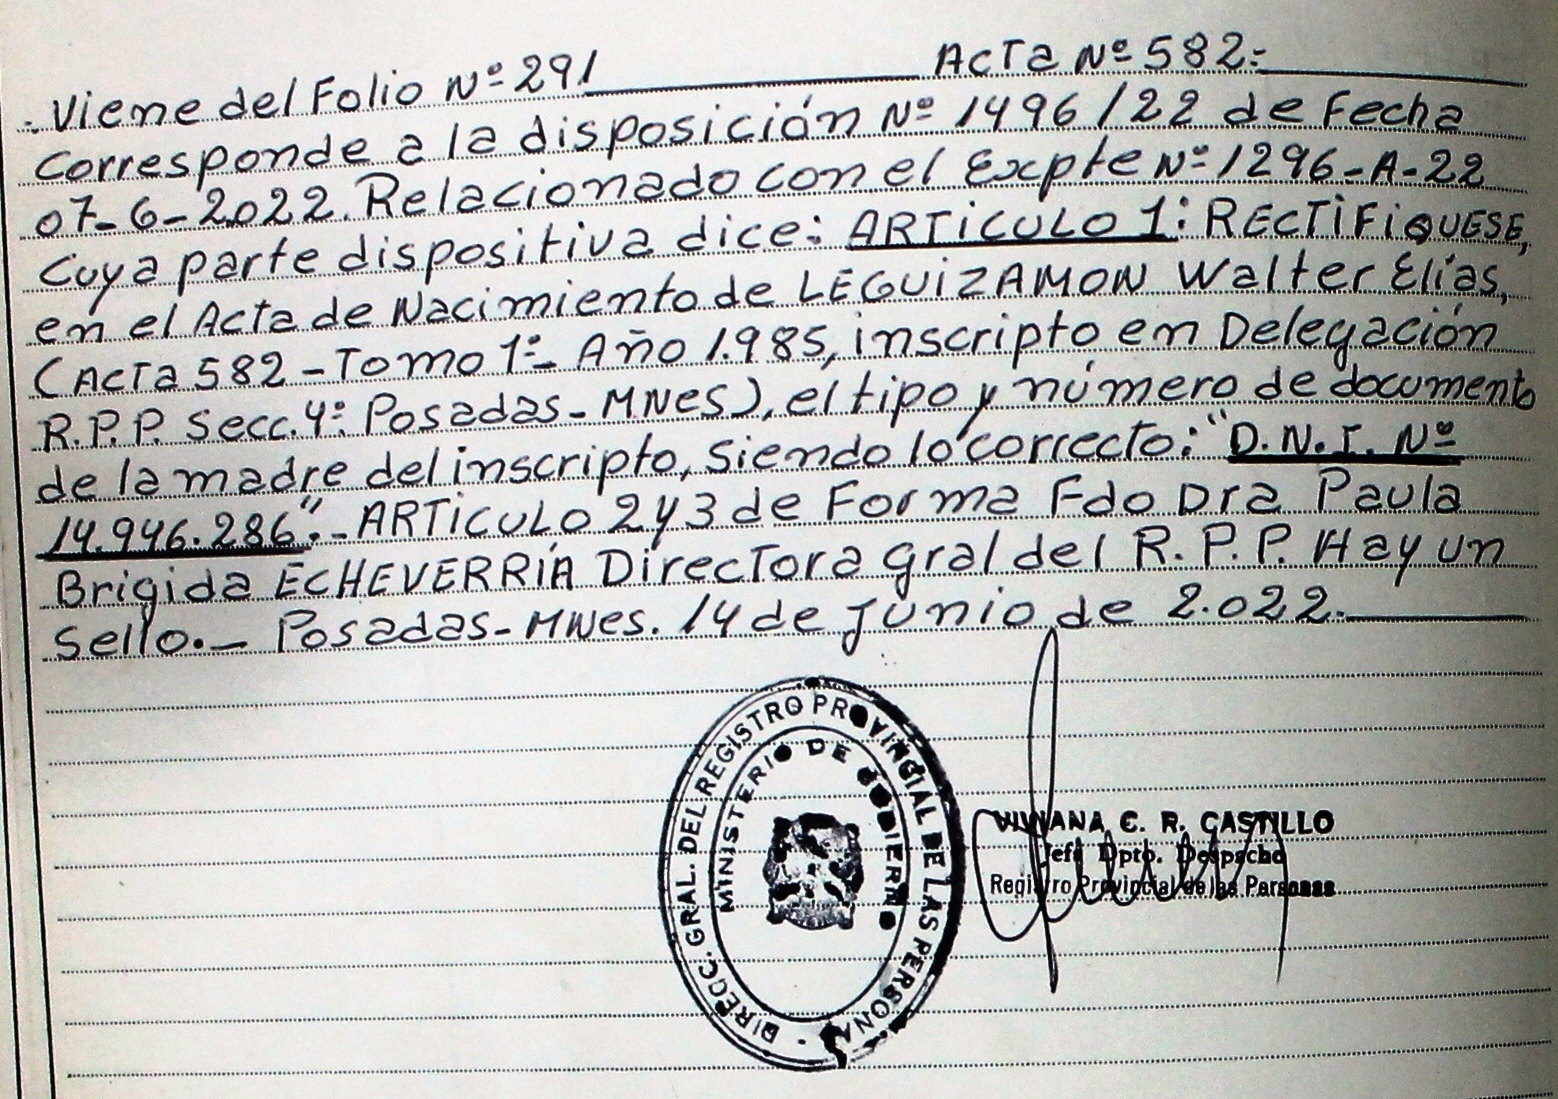 . Viene del Folio Nº 291 Acta Nº 582:-
Corresponde a la disposición Nº 1496/22 de Fecha
07-6-2022. Relacionado con el Expte Nº 1296-A-22
Cuya parte dispositiva dice: ARTICULO 1: RECTIFIQUESE,
en el Acta de Nacimiento de LEGUIZAMON Walter Elías,
(Acta 582 - Tomo 1º- Año 1.985, inscripto en Delegación
R.P.P. Secc. 4º: Posadas - MNes), el tipo y número de documento
de la madre del inscripto, siendo lo correcto: "D.N.I. Nº
14.946.286".- ARTICULO 2 y 3 de Forma Fdo Dra Paula
Brigida ECHEVERRÍA Directora gral del R.P.P. Hay un
Sello.- Posadas - MNes. 14 de Junio de 2.022.-
DIRECC. GRAL. DEL REGISTRO PROVINCIAL DE LAS PERSONAS -
MINISTERIO DE GOBIERNO
VIVIANA C. R. CASTILLO
Jefe Dpto. Despacho
Registro Provincial de las Personas